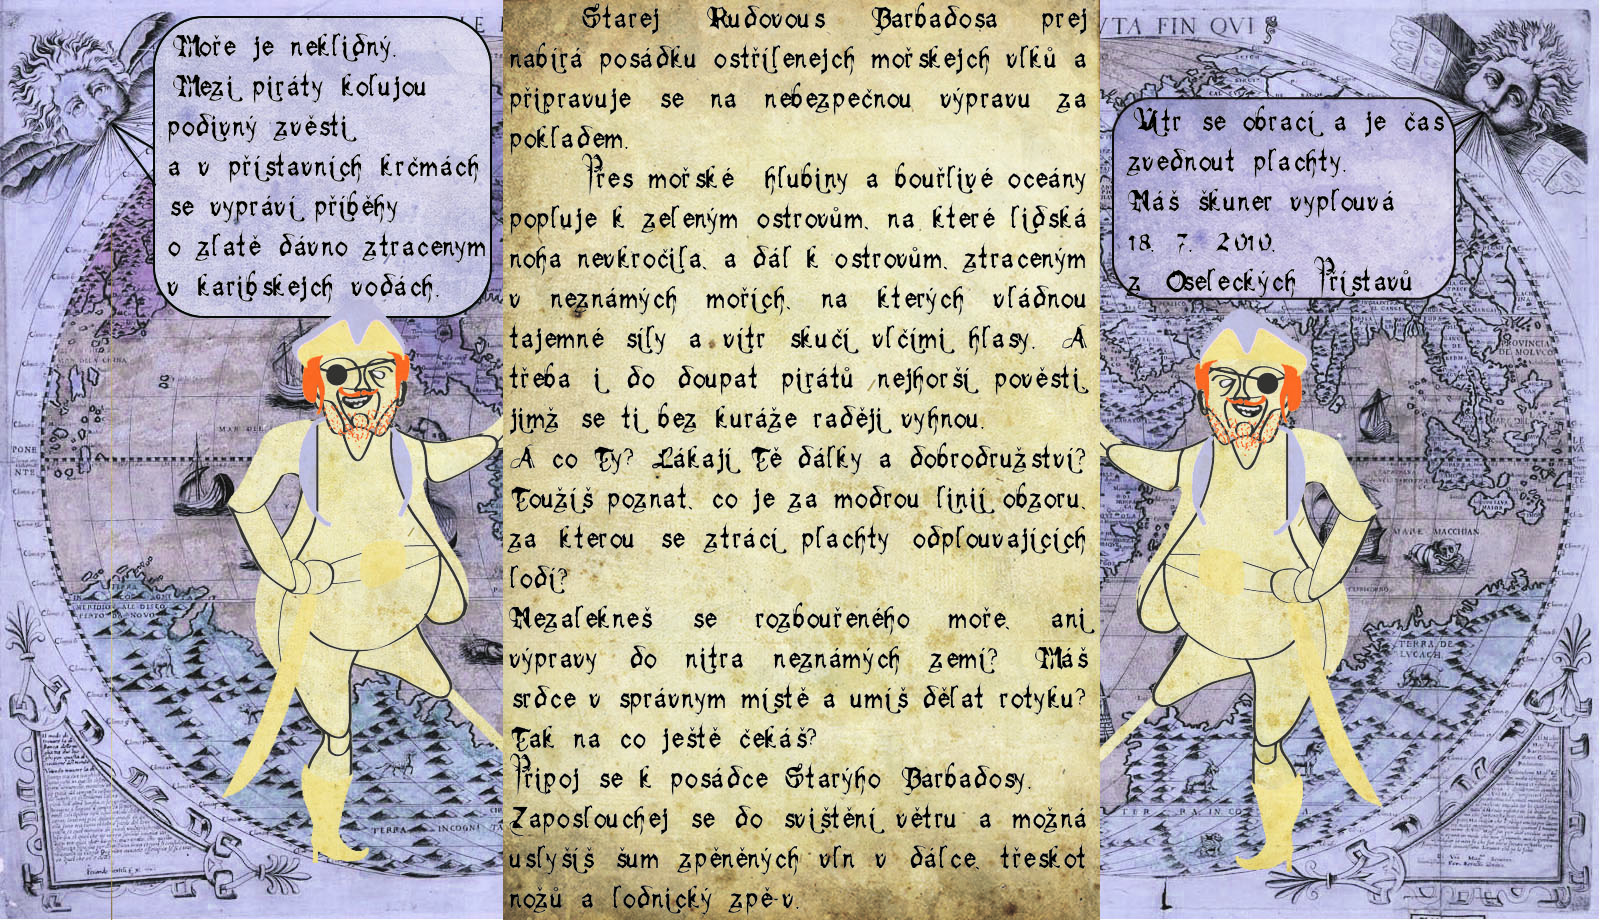 Moře je neklidný.
Mezi piráty kolujou
podivný zvěsti
a v přístavních krčmách
se vypráví příběhy
o zlatě dávno ztracenym
v karibskejch vodách.
Starej Rudovous Barbadosa prej
nabírá posádku ostřílenejch mořskejch vlků a
připravuje se na nebezpečnou výpravu za
pokladem.
Přes mořské hlubiny a bouřlivé oceány
popluje k zeleným ostrovům, na které lidská
noha nevkročila, a dál k ostrovům, ztraceným
v neznámých mořích, na kterých vládnou
tajemné síly a vítr skučí vlčími hlasy. A
třeba i do doupat pirátů nejhorší pověsti,
jimž se ti bez kuráže raději vyhnou.
A co Ty? Lákají Tě dálky a dobrodružství?
Toužíš poznat, co je za modrou linií obzoru,
za kterou se ztrácí plachty odplouvajících
lodí?
Nezalekneš se rozbouřeného moře, ani
výpravy do nitra neznámých zemí? Máš
srdce v správnym místě a umíš dělat rotyku?
Tak na co ještě čekáš?
Připoj se k posádce Starýho Barbadosy.
Zaposlouchej se do svištění větru a možná
uslyšíš šum zpěněných vln v dálce, třeskot
nožů a lodnický zpě-v.
Vítr se obrací a je čas
zvednout plachty.
Náš škuner vyplouvá
18. 7. 2010.
z Oseleckých Přístavů
VTA FIN QVI
MAR DELA CHINA
MAR DEL
PONE
NTE.
TERRA INCOGNI
PROVINCIA
DE MOLVCO
MARE MACCHIAN
TERRA DE
LVCACH